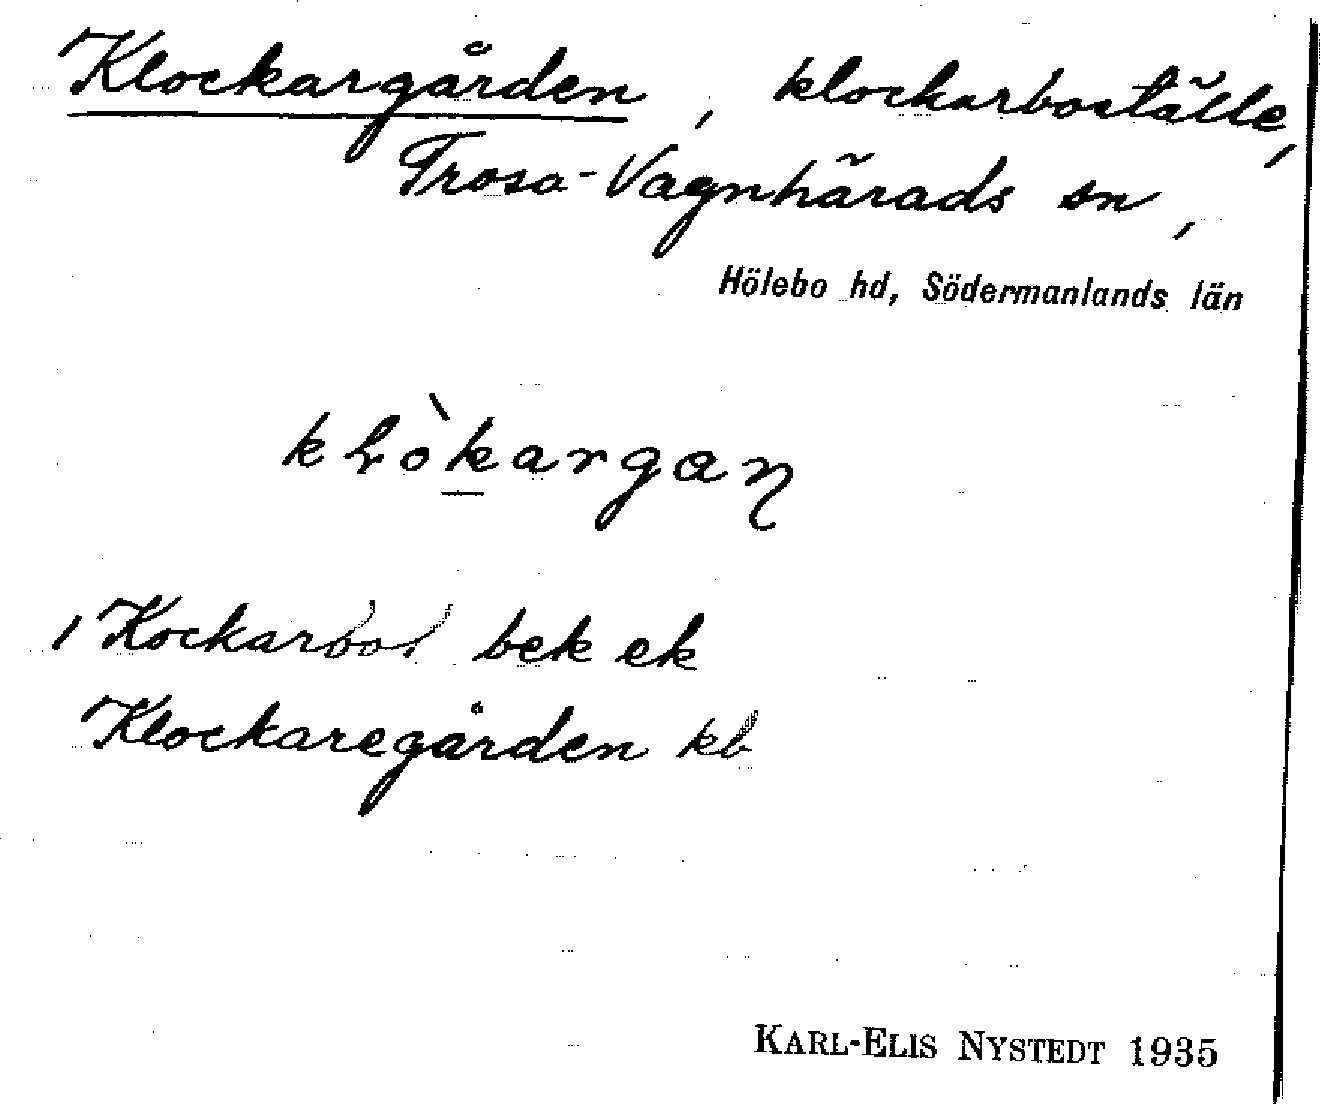 Klockargården, klockarboställe,
Trosa-Vagnhärads sn,
Hölebo hd, Södermanlands län
kɽòkargaɳ
bek ek
Klockaregården kb
KARL-ELIS NYSTEDT 1935